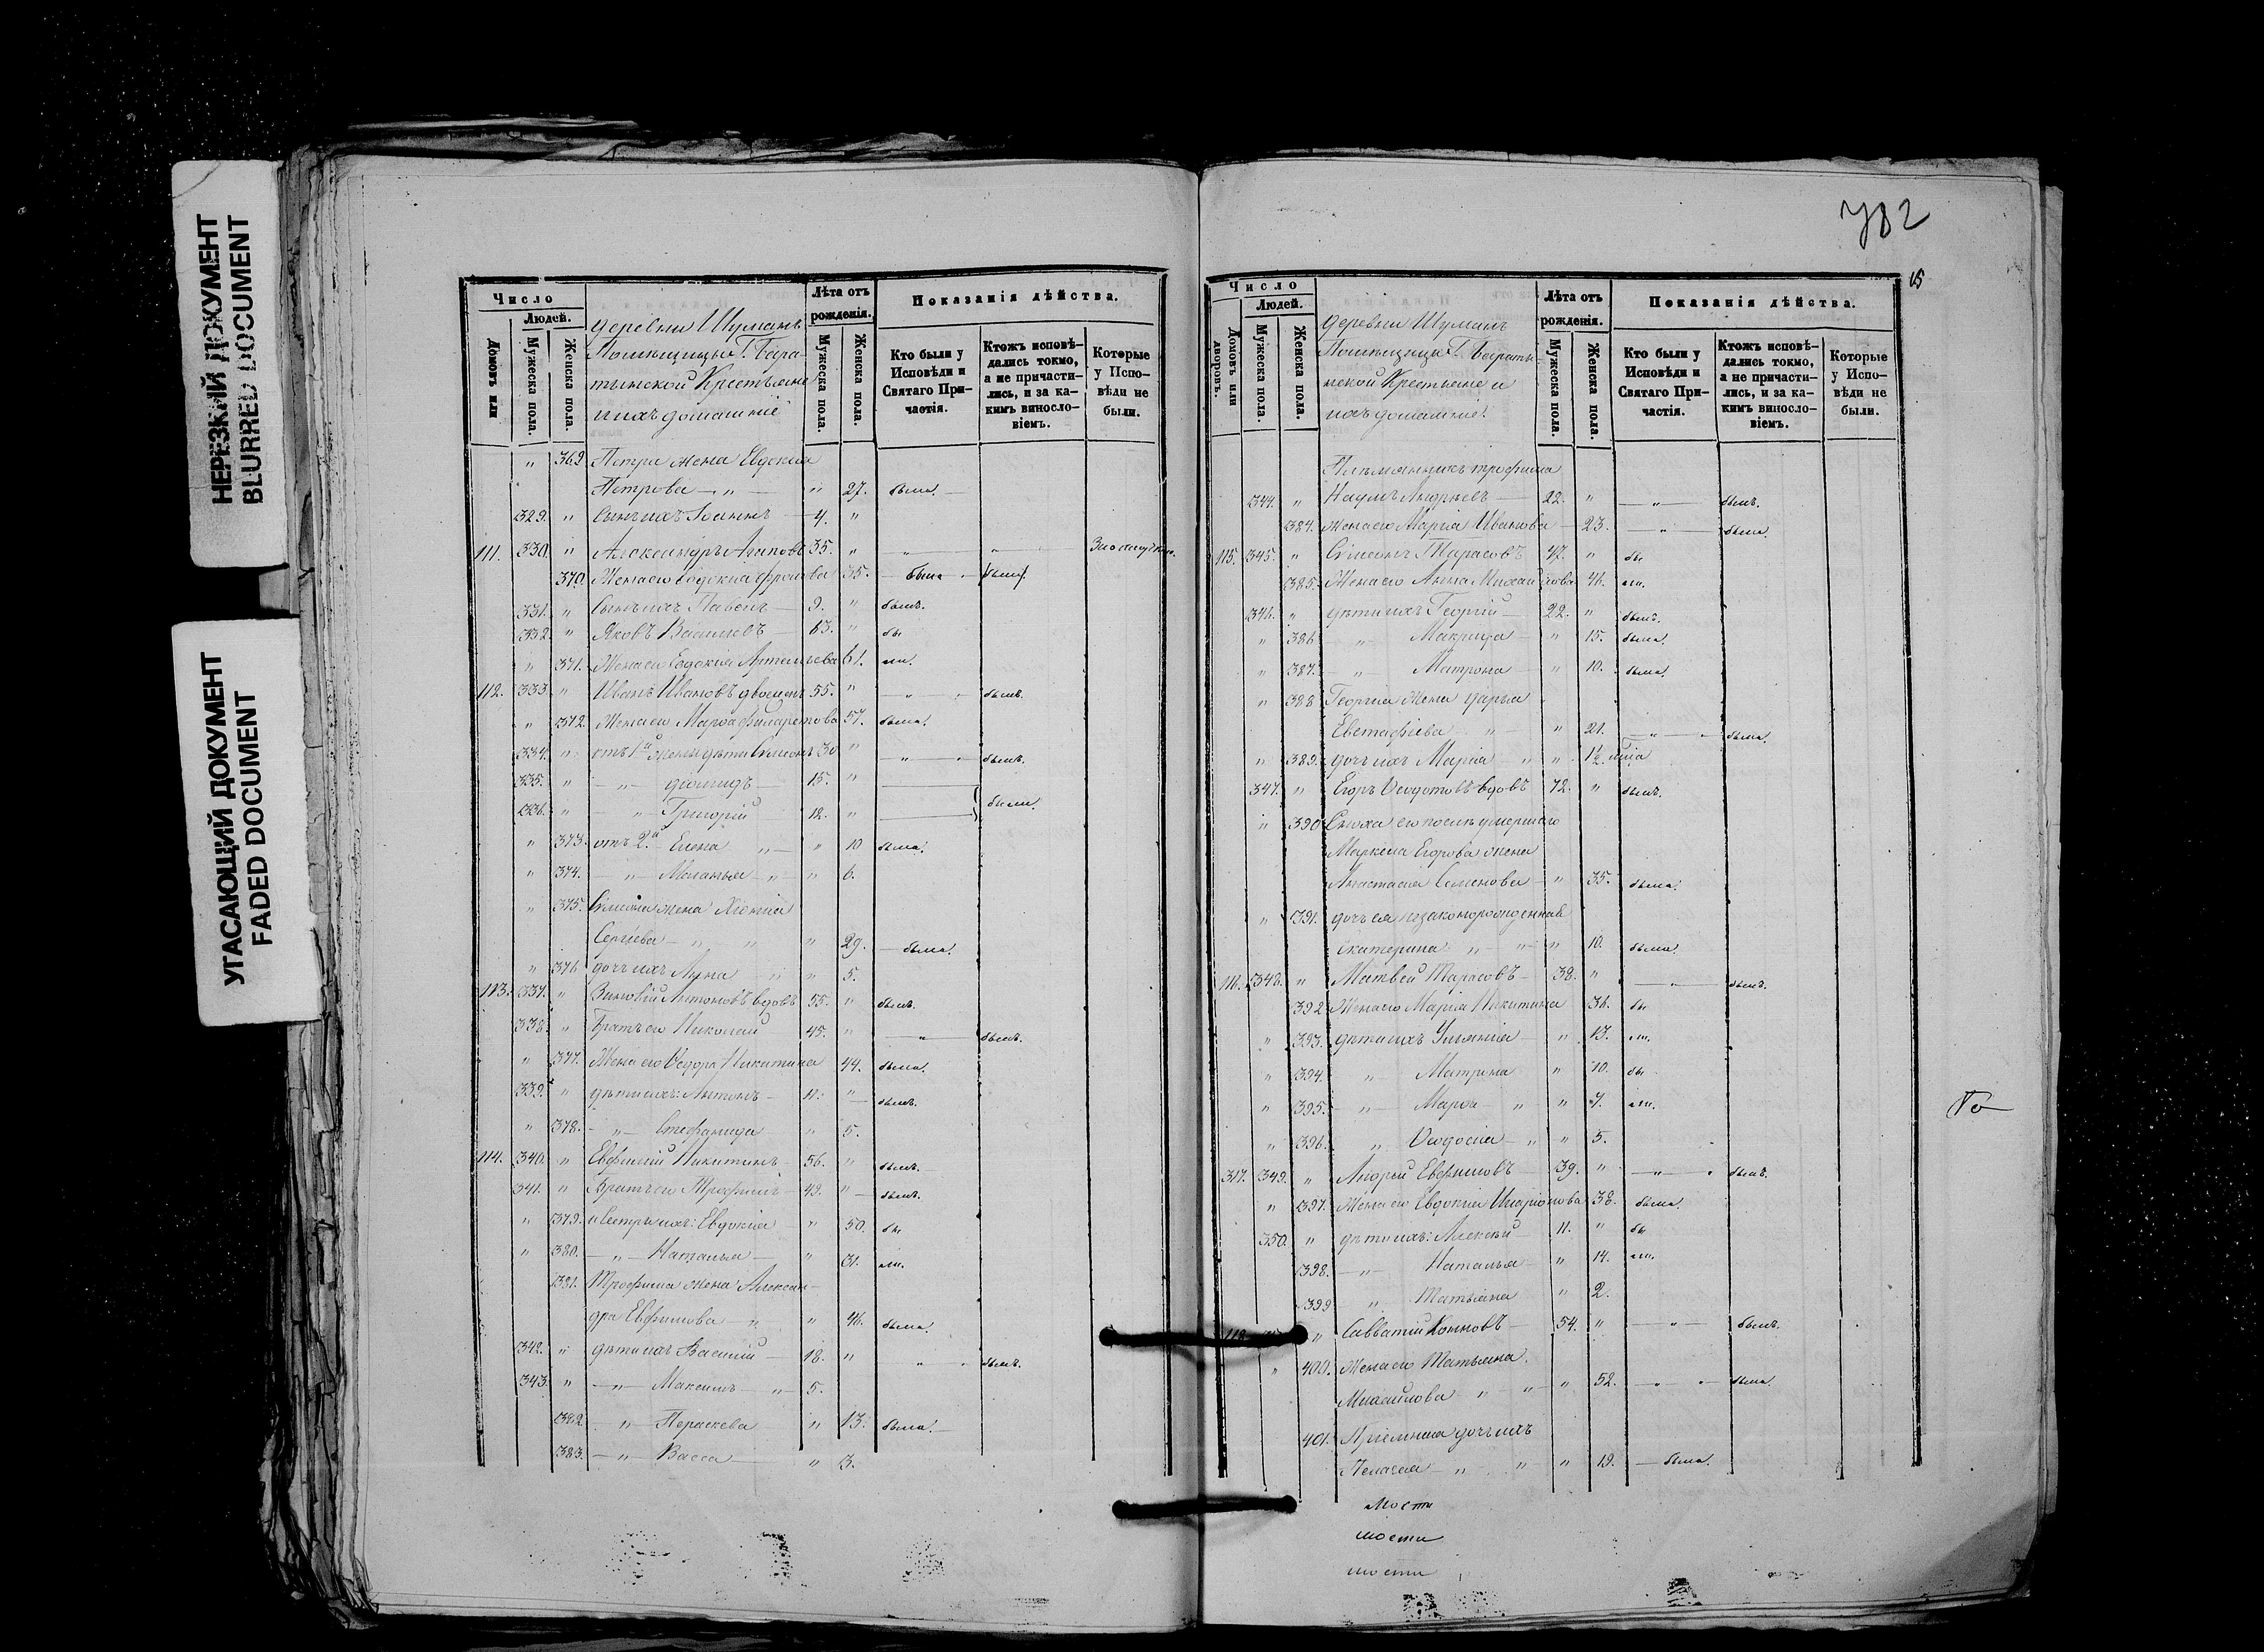 НЕРЕЗКИЙ ДОКУМЕНТ
BLURRED DOCUMENT
УГАСАЮЩИЙ ДОКУМЕНТ
FADED DOCUMENT
Число
Людей.
Домовъ или
Мужеска пола.
Женска пола.
деревни Шуманъ
Помѣщицы Г. Бора-
тынской Крестьяне
и ихъ домашніе
Лѣта отъ рожденія.
Мужеска пола.
Женска пола.
Показанія дѣйства.
Кто были у Исповѣди и Святаго При-частія.
Ктожъ исповѣ-дались токмо, а не причасти-лись, и за ка-кимъ виносло-віемъ.
Которые у Испо-вѣди не были.
" 369. Петра жена Евдокія
Петрова " " 27. была.
329. " Сынъ ихъ Іоаннъ 4. "
111. 330. " Александръ Агаповъ 35. " " "
370. Жена его Евдокія 35. была
331. " Сынъ ихъ Павелъ 9. " былъ.
332. " Яковъ Васильевъ 63. " бы
" 371. Жена его Евдокія 61. ли.
112. 333. " Иванъ Ивановъ 55. " " былъ.
" 372. Жена его Марѳа 57. была.
334. " отъ 1й жены дѣти Симеонъ 30 " " былъ.
335. " " 15. "
336. " " Григорій 12. " были.
" 373. отъ 2й Елена " " 10 была.
" 374. " Меланья " " 6.
" 375. Симеона жена Ксенія
Сергіева " " " 29. была.
" 376 дочь ихъ Анна " " 5.
113. 337. " Зиновій Антоновъ вдовъ 55. " былъ.
338. " Братъ его Николай 45. " " былъ.
" 377. Жена его Ѳедора Никитина 44. была.
339. " дѣти ихъ: Антонъ 11. " былъ.
" 378. " Стефанида " 5.
114. 340. " Евфимій Никитинъ 56. " былъ.
341. " Братъ его Трофимъ 49. " былъ.
" 379. и Сестры ихъ: Евдокія " 50. бы
" 380. " Наталья " 31. ли.
381. Трофима жена Алексан-
дра Евфимова " " 46. была.
342. " дѣти ихъ Василій 18. " " былъ.
343. " " Максимъ " 5.
382. " Параскева " 13. была.
383. " Васса " 3.
782
15
Число
Людей.
Домовъ или дворовъ.
Мужеска пола.
Женска пола.
деревни Шуманъ
Помѣщицы Г. Бораты-
нской Крестьяне и
ихъ домашніе.
Лѣта отъ рожденія.
Мужеска пола.
Женска пола.
Показанія дѣйства.
Кто были у Исповѣди и Святаго При-частія.
Ктожъ исповѣ-дались токмо, а не причасти-лись, и за ка-кимъ виносло-віемъ.
Которые у Испо-вѣди не были.
Племянникъ трофима
344. " Наумъ Андреевъ 22. " " былъ.
384. жена его Марія Иванова 23. " была.
115. 345. " Симеонъ Тарасовъ 47. " бы
385. Жена его Анна 46. ли.
346. " дѣти ихъ Георгій 22. " былъ.
" 386. " Макрида " 15. была.
" 387. " Матрона " 10. была.
" 388 Георгія жена Дарья
Евстафіева " " 21. " была.
" 389. дочь ихъ Марія " " 1½
347. " Егоръ Ѳедотовъ вдовъ 72. " былъ.
" 390. Сноха его послѣ умершаго
Маркела Егорова жена
Анастасія Семенова " 35. была.
" 391. дочь ея незаконорожденная
Екатерина " " " 10. была.
116. 348. " Матвей Тарасовъ 38. " " былъ.
392. Жена его Марія Никитина 36. бы
" 393. дѣти ихъ Ульянія " 13. ли.
" 394. " Матрена " 10. бы
" 395. " Марѳа " " 7. ли.
" 396. " Ѳеодосія " " 5.
317. 349. " Андрей Евфимовъ 39. " " былъ.
" 397. Жена его Евдокія Иларіонова 38. была.
350. " дѣти ихъ: Алексѣй 11. " бы
398. " Наталья " 14. ли.
399 " Татьяна " 2.
118. " Савватій 54. " " былъ.
" 400. Жена его Татьяна
Михайлова " " " 52. " была.
401. Пріемная дочь ихъ
Пелагея " " " 19. была.
мости
мости
мости